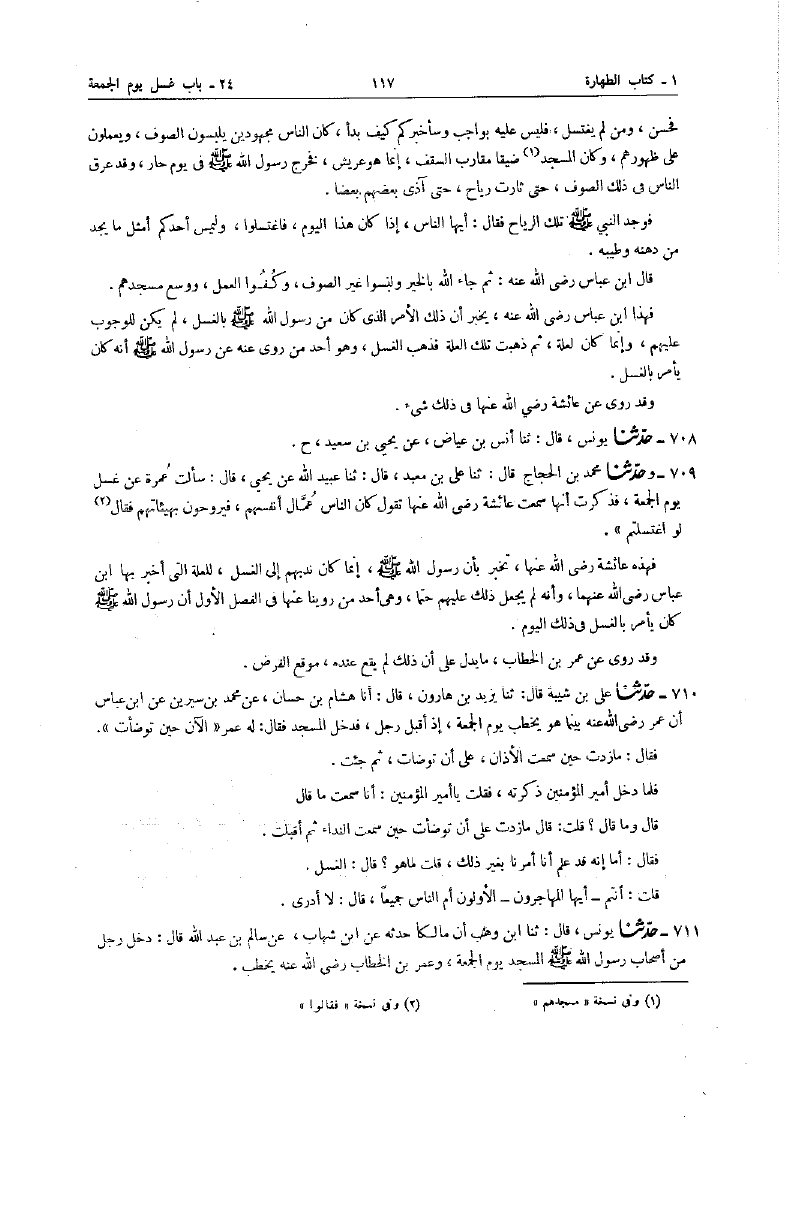 ١ ـ كتاب الطهارة ١١٧ ٢٤ ـ باب غسل يوم الجمعة
فحسن ، ومن لم يغتسل ، فليس عليه بواجب وسأخبركم كيف بدأ ، كان الناس مجهودين يلبسون الصوف ، ويعملون
على ظهورهم ، وكان المسجد(١) ضيقا مقارب السقف ، إنما هو عريش ، فخرج رسول الله ﷺ فى يوم حار ، وقد عرق
الناس فى ذلك الصوف ، حتى ثارت رياح ، حتى آذى بعضهم بعضا .
فوجد النبي ﷺ تلك الرياح فقال : أيها الناس ، إذا كان هذا اليوم ، فاغتسلوا ، وليمس أحدكم أمثل ما يجد
من دهنه وطيبه .
قال ابن عباس رضى الله عنه : ثم جاء الله بالخير ولبسوا غير الصوف ، وكُفُوا العمل ، ووسع مسجدهم .
فهذا ابن عباس رضى الله عنه ، يخبر أن ذلك الأمر الذى كان من رسول الله ﷺ بالغسل ، لم يكن للوجوب
عليهم ، وإنما كان لعلة ، ثم ذهبت تلك العلة فذهب الغسل ، وهو أحد من روى عنه عن رسول الله ﷺ أنه كان
يأمر بالغسل .
وقد روى عن عائشة رضي الله عنها فى ذلك شىء .
٧٠٨ ـ حدّثنا يونس ، قال : ثنا أنس بن عياض ، عن يحيي بن سعيد ، ح .
٧٠٩ ـ وحدّثنا محمد بن الحجاج قال : ثنا على بن معبد ، قال : ثنا عبيد الله عن يحيي ، قال : سألت عُمرة عن غسل
يوم الجمعة ، فذكرت أنها سمعت عائشة رضى الله عنها تقول كان الناس عُمَّال أنفسهم ، فيروحون بهيئاتهم فقال(٢)
لو اغتسلتم » .
فهذه عائشة رضى الله عنها ، تخبر بأن رسول الله ﷺ ، إنما كان ندبهم إلى الغسل ، للعلة التى أخبر بها ابن
عباس رضى الله عنهما ، وأنه لم يجعل ذلك عليهم حتما ، وهى أحد من روينا عنها فى الفصل الأول أن رسول الله ﷺ
كان يأمر بالغسل فى ذلك اليوم .
وقد روى عن عمر بن الخطاب ، مايدل على أن ذلك لم يقع عنده ، موقع الفرض .
٧١٠ ـ حدّثنا على بن شيبة قال: ثنا يزيد بن هارون ، قال : أنا هشام بن حسان ، عن محمد بن سيرين عن ابن عباس
أن عمر رضى الله عنه بينما هو يخطب يوم الجمعة ، إذ أقبل رجل ، فدخل المسجد فقال: له عمر « الآن حين توضأت » .
فقال : مازدت حين سمعت الأذان ، على أن توضأت ، ثم جئت .
فلما دخل أمير المؤمنين ذكرته ، فقلت ياأمير المؤمنين : أنا سمعت ما قال
قال وما قال ؟ قلت: قال مازدت على أن توضأت حين سمعت النداء ثم أقبلت .
فقال : أما إنه قد علم أنا أمرنا بغير ذلك ، قلت لماهو ؟ قال : الغسل .
قلت : أنتم ـ أيها المهاجرون ـ الأولون أم الناس جميعاً ، قال : لا أدرى .
٧١١ ـ حدّثنا يونس ، قال : ثنا ابن وهب أن مالكاً حدثه عن ابن شهاب ، عن سالم بن عبد الله قال : دخل رجل
من أصحاب رسول الله ﷺ المسجد يوم الجمعة ، وعمر بن الخطاب رضى الله عنه يخطب .
(١) وفى نسخة « مسجدهم » (٢) وفى نسخة « فقالوا »